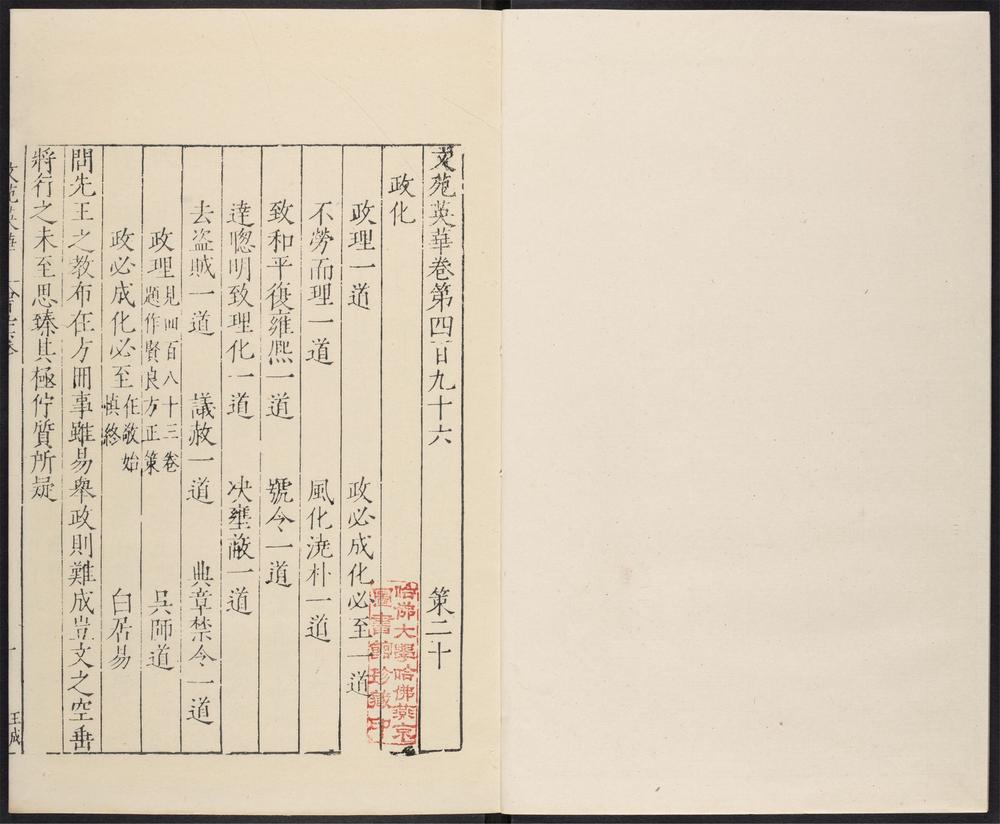 文苑英華卷第四百九十六 策二十
政化
政理一道 政必成化必至一道
不勞而理一道 風化澆朴一道
致和平復雍熈一道 號令一道
達聦明致理化一道 决壅蔽一道
去盗賊一道 議赦一道 典章禁令一道
政理見四百八十三卷題作賢良方正策 吳師道
政必成化必至在敬始慎終 白居易
問先王之教布在方冊事雖易舉政則難成豈文之空垂
將行之未至思臻其極佇質所疑
哈佛大學哈佛燕京
圖書館珍藏印